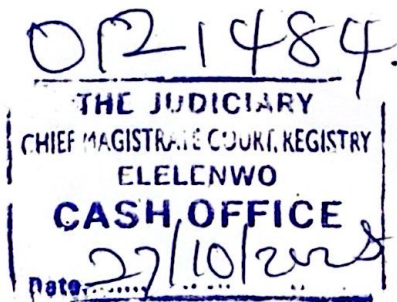 OR1484.
THE JUDICIARY
CHIEF MAGISTRATE COURT, REGISTRY
ELELENWO
CASH OFFICE
Date 27/10/2025